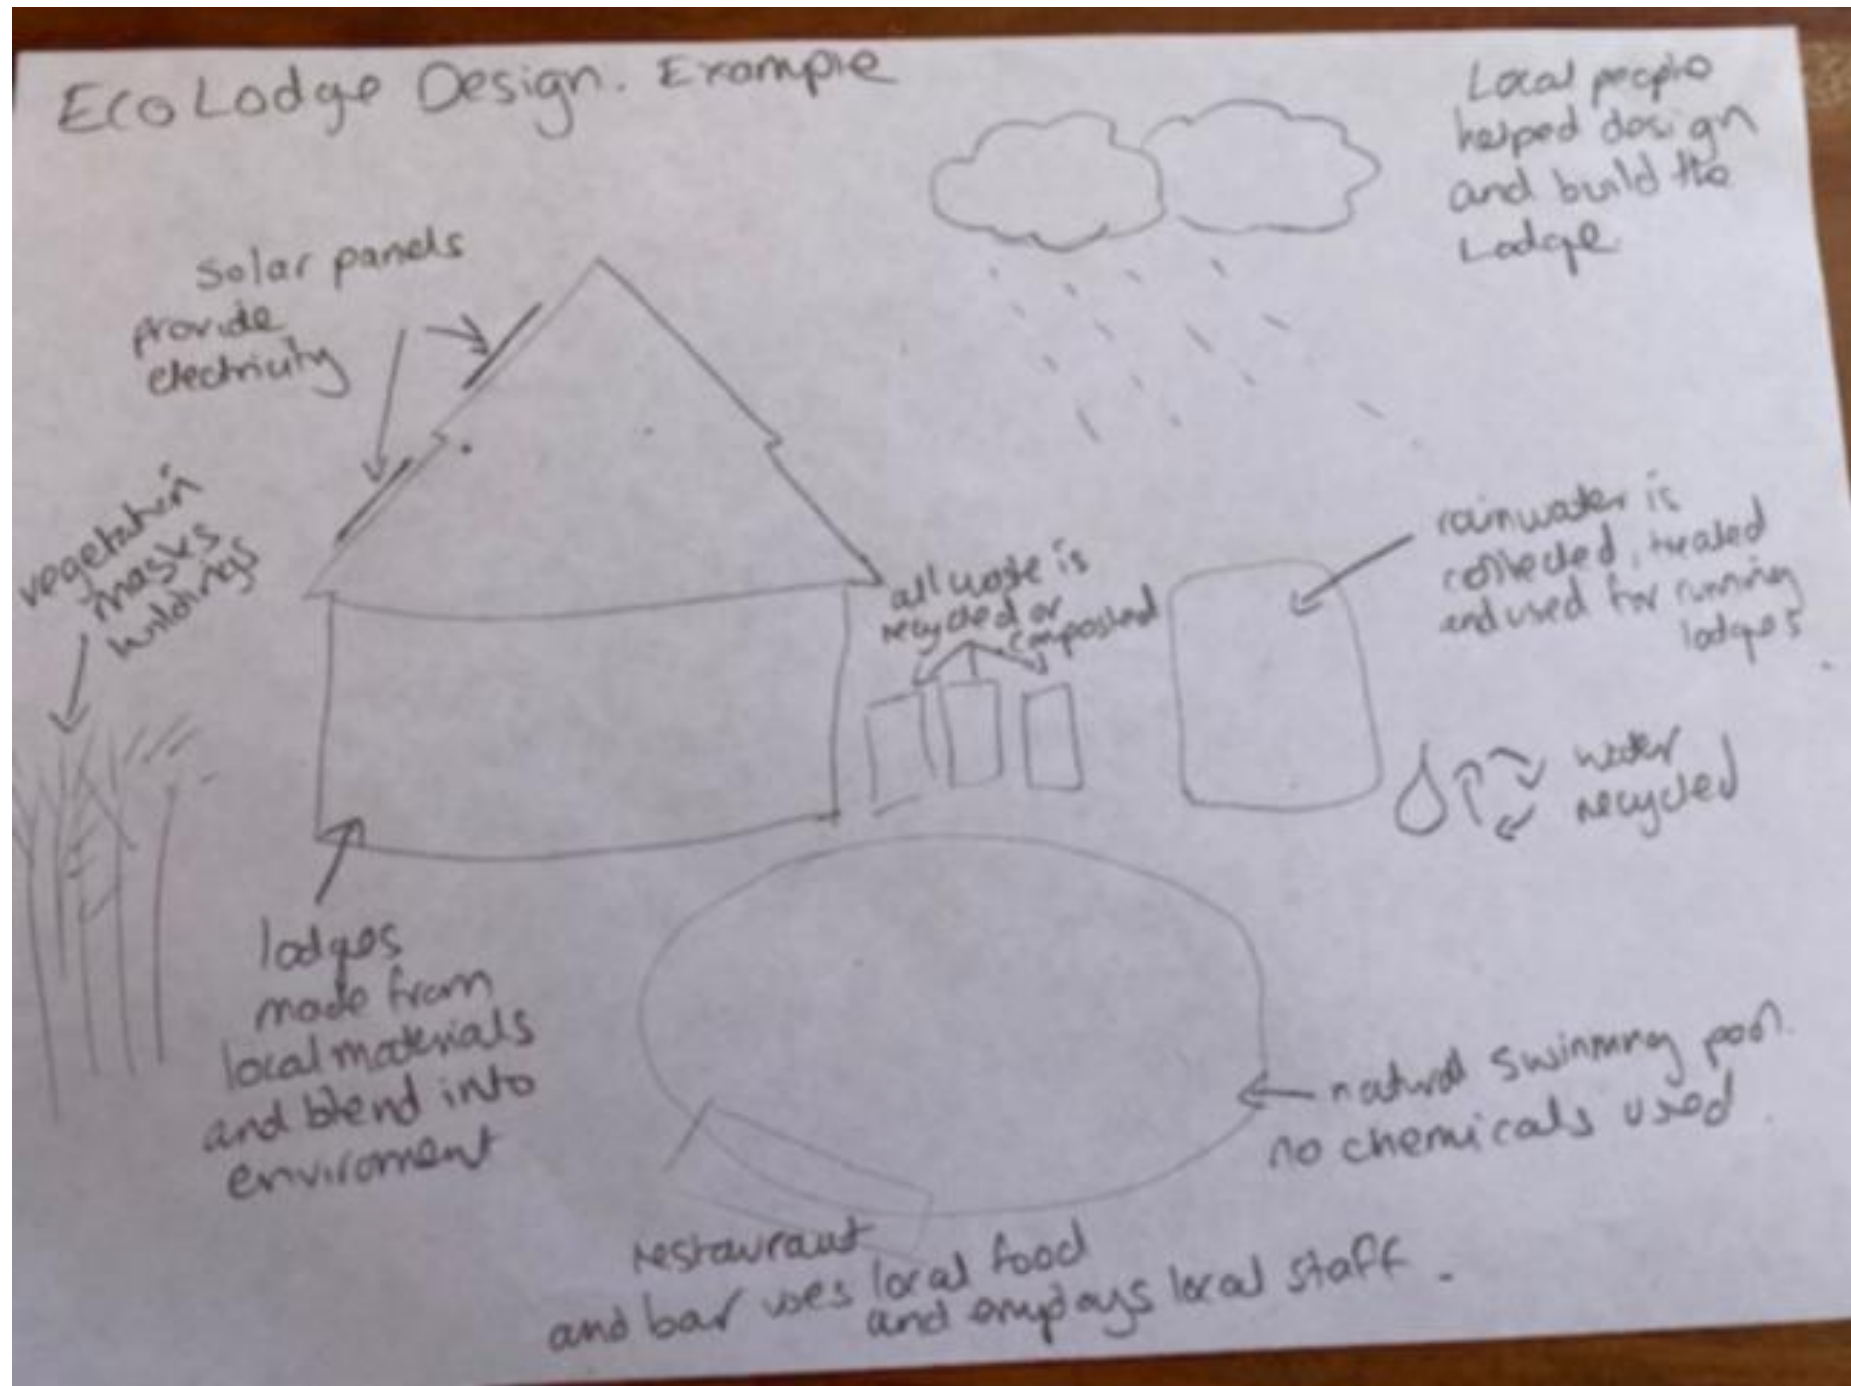 Eco Lodge Design. Example
Local people
helped design
and build the
Lodge
Solar panels
provide
electricity
vegetation
masks
buildings
all waste is
recycled or
composted
rainwater is
collected, treated
and used for running
lodges
water
recycled
lodges
made from
local materials
and blend into
enviroment
natural swimming pool.
no chemicals used.
restaurant
and bar uses local food
and employs local staff.